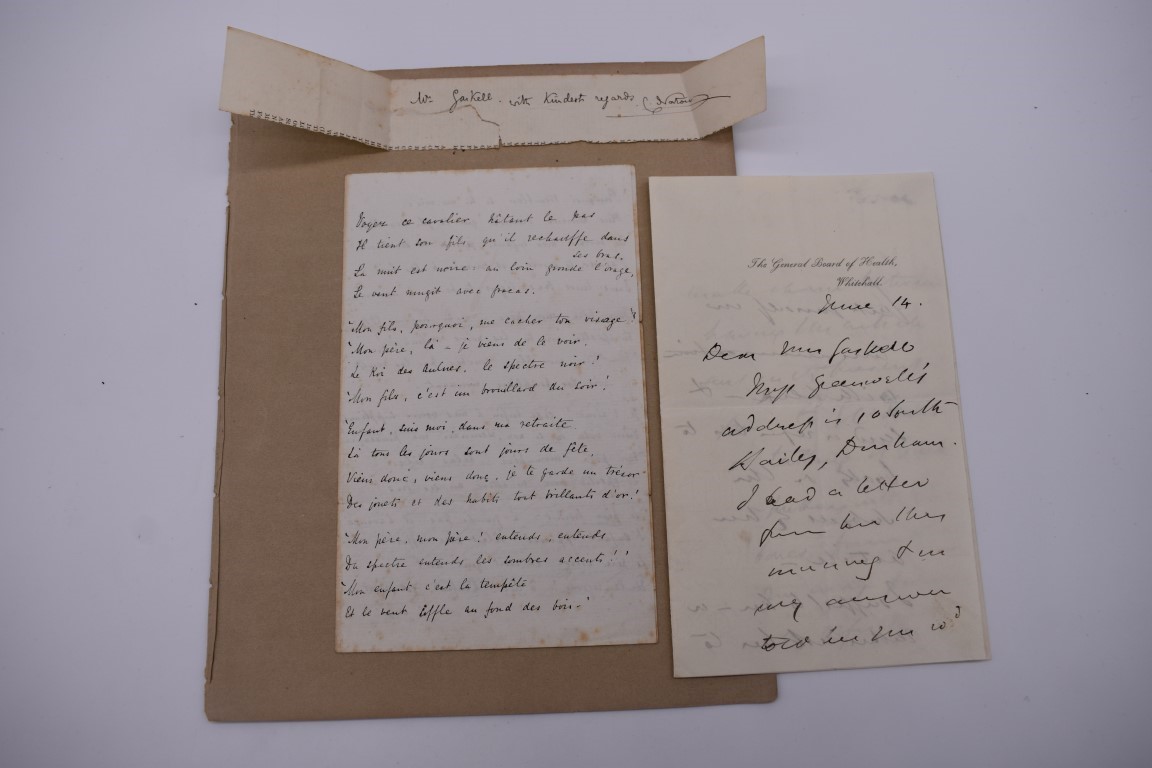 Mrs Gaskell. with kindest regards
Voyez ce cavalier hâtant le pas
Il tient son fils qu'il rechauffe dans
ses bras.
La nuit est noire au loin gronde l'orage,
Le vent mugit avec fracas.
"Mon fils, pourquoi, me cacher ton visage"!
"Mon père, là - je viens de le voir.
Le Roi des Aulnes. le spectre noir!
"Mon fils, c'est un brouillard du soir!
"Enfant, suis moi, dans ma retraite
Là tous les jours sont jours de fête,
Viens donc, viens donc, je te garde un trésor
Des jouets et des habits tout brillants d'or!
"Mon père, mon père! entends, entends
Du spectre entends les sombres accents!!
"Mon enfant c'est la tempête
Et le vent siffle au fond des bois-"
The General Board of Health,
Whitehall.
June 14.
Dear Mrs Gaskell
Miss Greenwell's
address is 10 South
Bailey, Durham.
I had a letter
from her this
morning & in
my answer
told her you wd